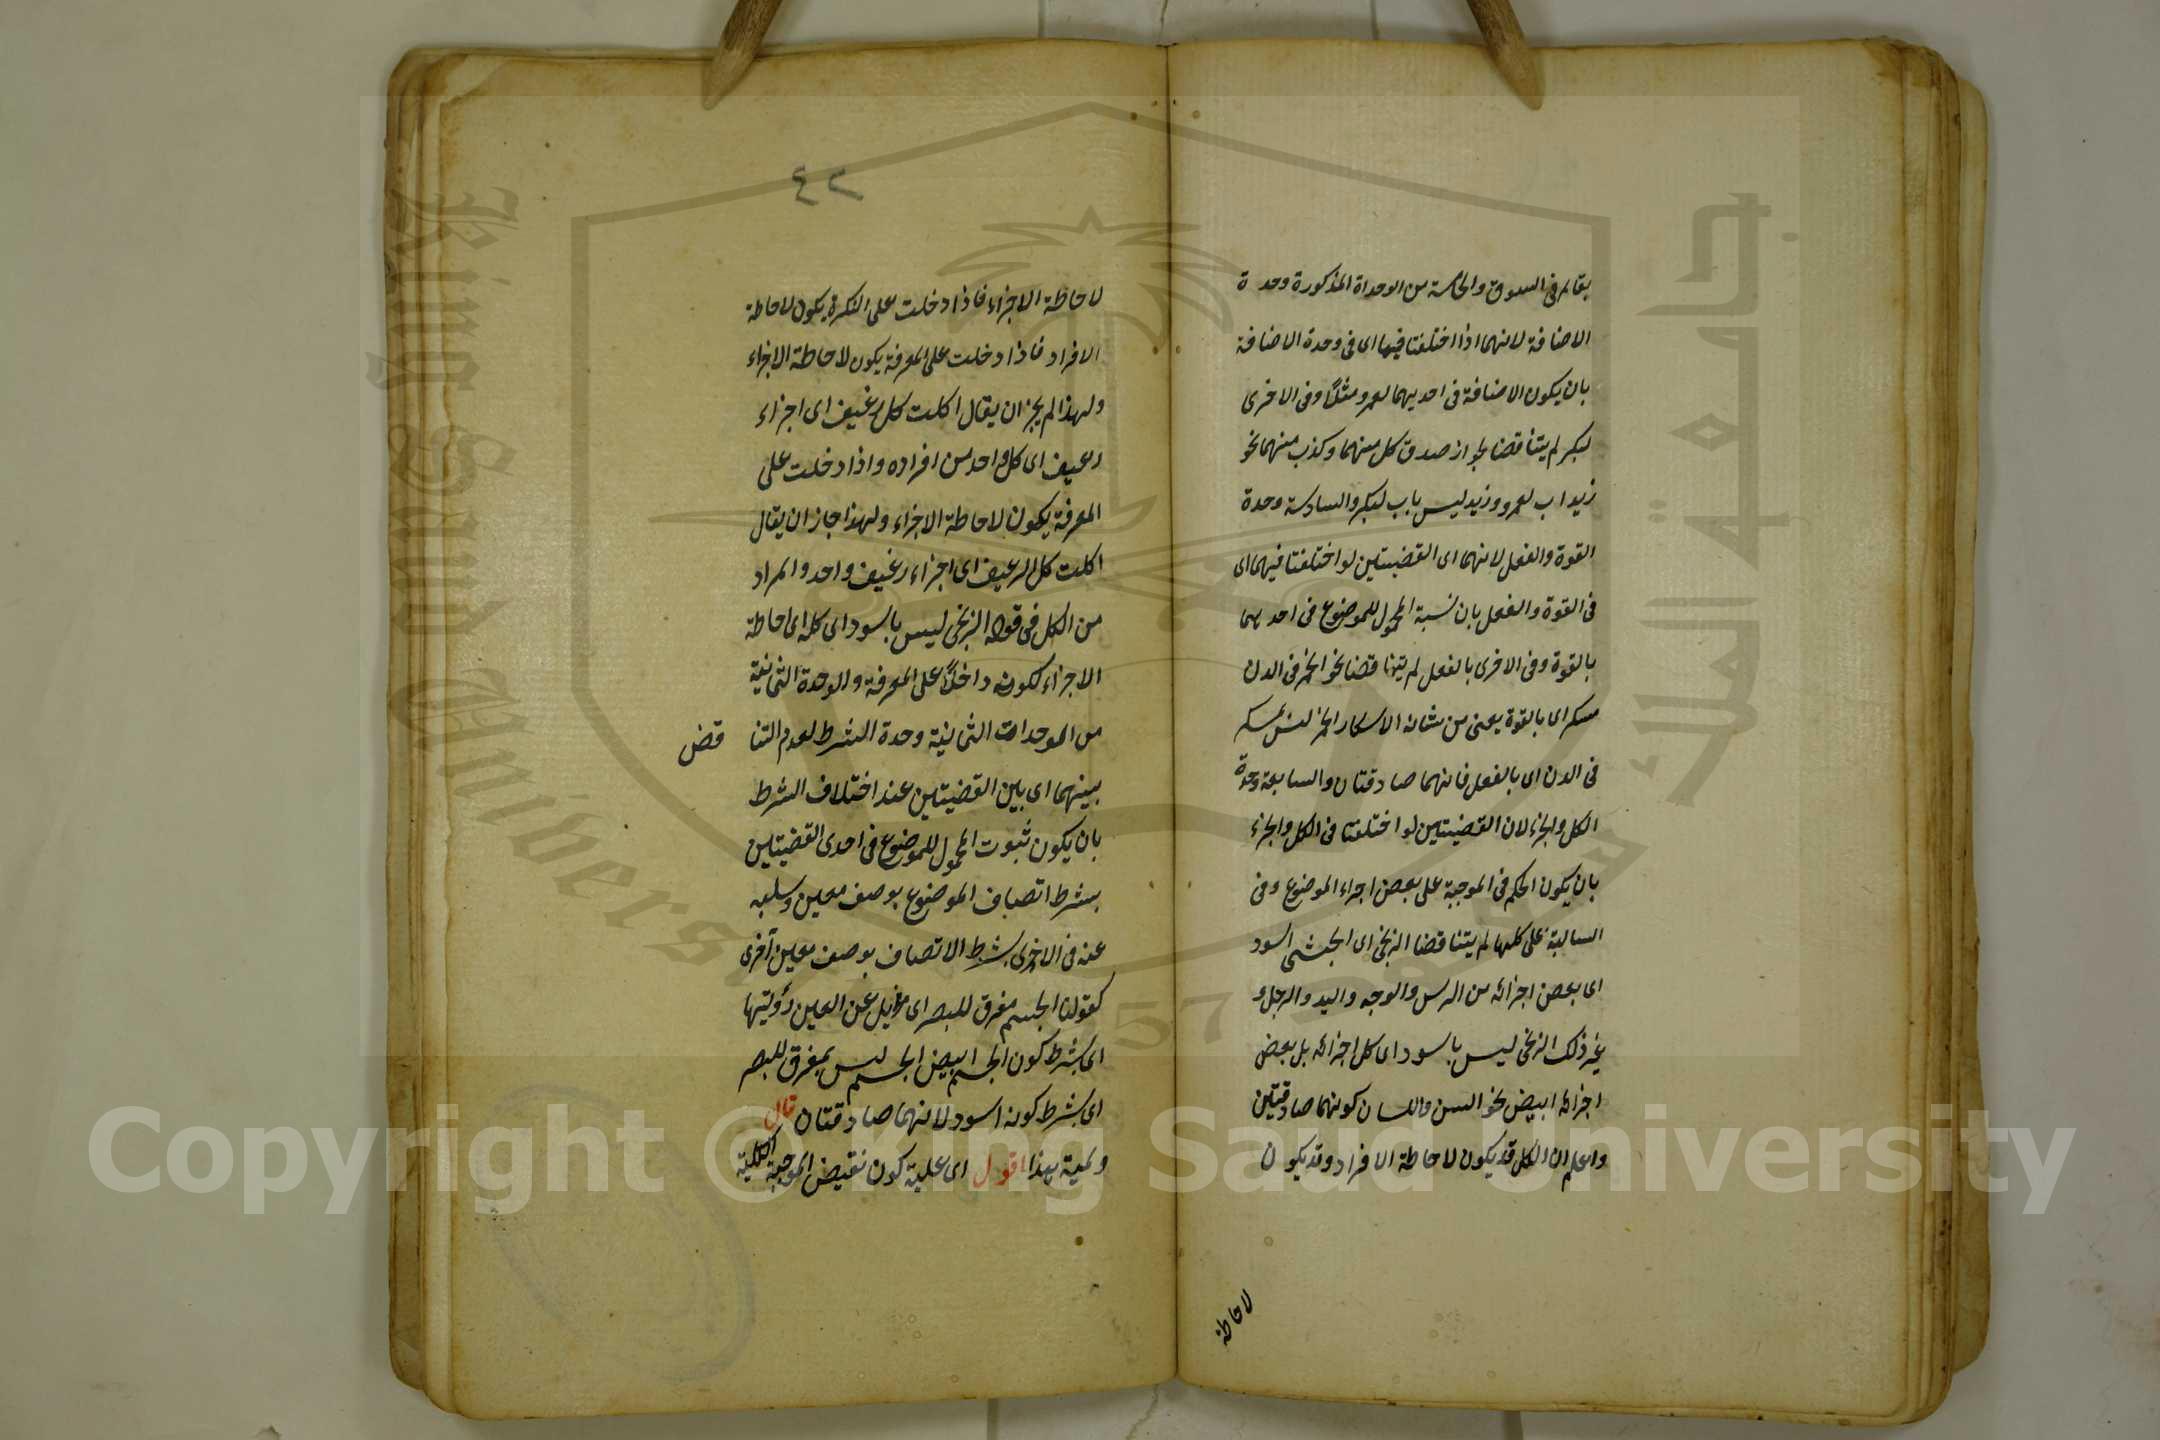 بقائم في السوق والخامسة من الوحداة المذكورة وحدة
الاضافة لانهما اذا اختلفتا فيها اى في وحدة الاضافة
بان يكون الاضافة في احديهما لعمرو مثلًا وفي الاخرى
لبكر لم يتناقضا لجواز صدق كل منهما وكذب منهما نحو
زيد اب لعمرو وزيد ليس باب لبكر والسادسة وحدة
القوة والفعل لانهما اى القضيتين لو اختلفتا فيهما اى
في القوة والفعل بان نسبة المحمول للموضوع في احديهما
بالقوة وفي الاخرى بالفعل لم يتناقضا نحو الخمر في الدن
مسكر اى بالقوة يعنى من شانه الاسكار الخمر ليس بمسكر
في الدن اى بالفعل فانهما صادقتان والسابعة وحدة
الكل والجزء لان القضيتين لو اختلفتا في الكل والجزء
بان يكون الحكم في الموجبة على بعض اجزاء الموضوع وفي
السالبة على كلها لم يتناقضا الزنجى اى الحبشى اسود
اى بعض اجزائه من الرس والوجه واليد والرجل و
غير ذلك الزنجى ليس باسود اى كل اجزائه بل بعض
اجزائه ابيض نحو السن واللسان كونهما صادقتين
واعلم ان الكل قد يكون لاحاطة الافراد وقد يكون
لاحاطة
٢٤
لاحاطة الاجزاء فاذا دخلت على النكرة يكون لاحاطة
الافراد فاذا دخلت على المعرفة يكون لاحاطة الاجزاء
ولهذا لم يجز ان يقال اكلت كل رغيف اى اجزاء
رغيف اى كل واحد من افراده واذا دخلت على
المعرفة يكون لاحاطة الاجزاء ولهذا جاز ان يقال
اكلت كل الرغيف اى اجزاء رغيف واحد والمراد
من الكل في قوله الزنجى ليس باسود اى كله اى احاطة
الاجزاء لكونه داخلًا على المعرفة والوحدة الثمانية
من الموحدات الثمانية وحدة الشرط لعدم التناقض
بينهما اى بين القضيتين عند اختلاف الشرط
بان يكون ثبوت المحمول للموضوع في احدى القضيتين
بشرط اتصاف الموضوع بوصف معين وسلبه
عنه في الاخرى بشرط الاتصاف بوصف معين آخرى
كقولنا الجسم مفرق للبصر اى مزيل عن العين رؤيتها
اى بشرط كون الجسم ابيض الجسم ليس بمفرق للبصر
اى بشرط كونه اسود لانهما صادقتان قال
ولمية بهذا اقول اى علية كون نقيض الموجبة الكلية
Copyright © King Saud University
King Saud University
جامعة الملك سعود
1957